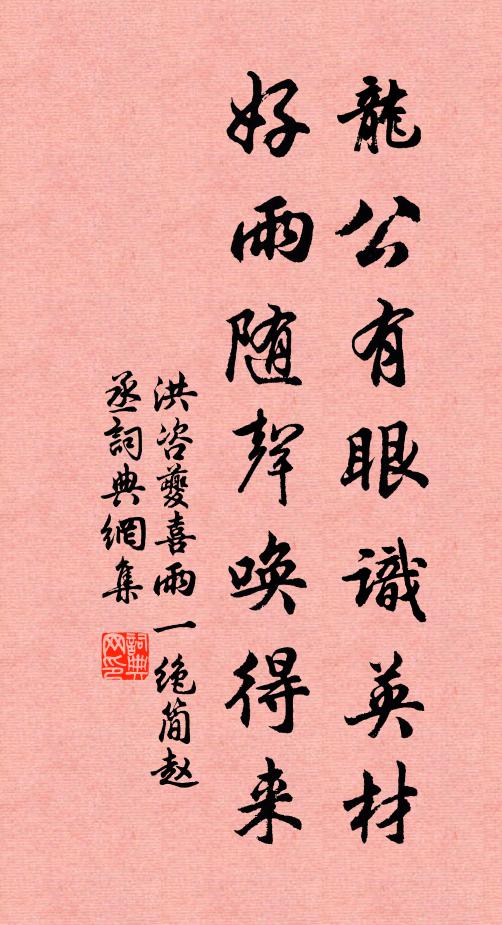 龍公有眼識英材
好雨随聲喚得来
洪咨夔喜雨一绝简赵
丞詞典網集
詞典网印